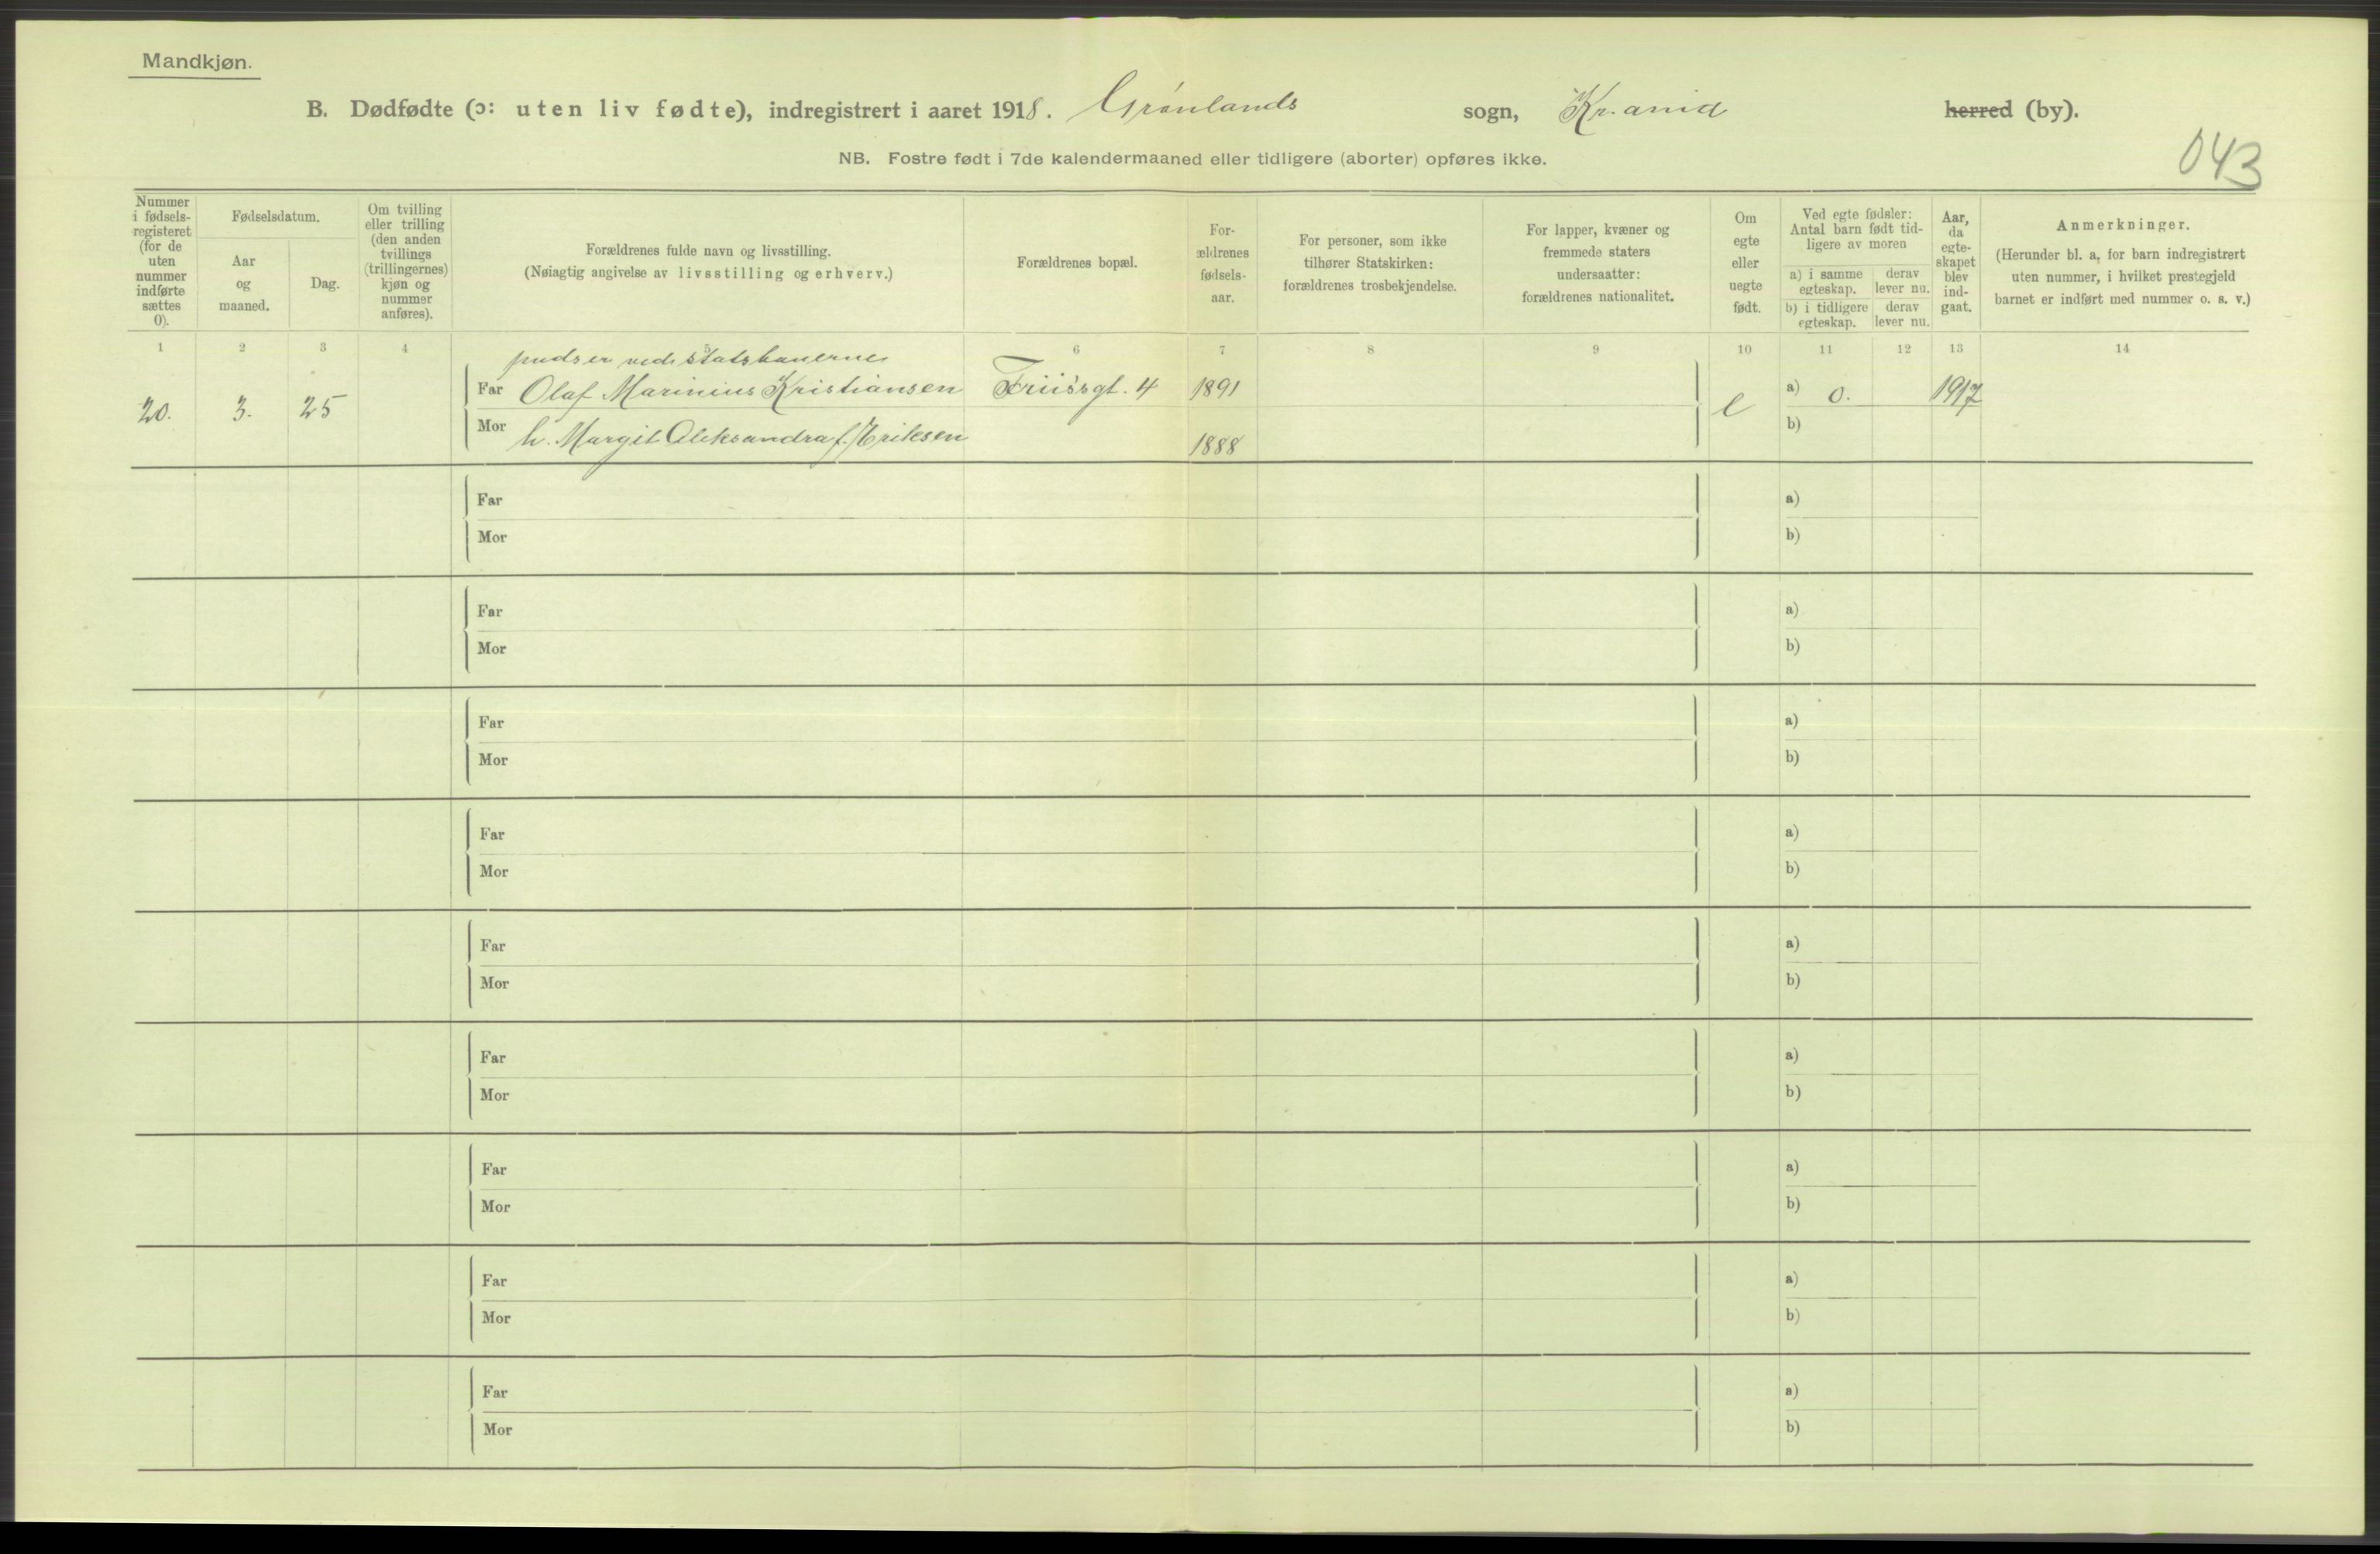 Mandkjøn.
B. Dødfødte (ɔ: uten liv fødte), indregistrert i aaret 1918. Grønlands sogn, Kr.ania herred (by).
NB. Fostre født i 7de kalendermaaned eller tidligere (aborter) opføres ikke.
043
Nummer
i fødsels-
registeret
(for de
uten
nummer
indførte
sættes
0).
Fødselsdatum.
Aar
og
maaned.
Dag.
Om tvilling
eller trilling
(den anden
tvillings
(trillingernes)
kjøn og
nummer
anføres).
Forældrenes fulde navn og livsstilling.
(Nøiagtig angivelse av livsstilling og erhverv.)
Forældrenes bopæl.
For-
ældrenes
fødsels-
aar.
For personer, som ikke
tilhører Statskirken:
forældrenes trosbekjendelse.
For lapper, kvæner og
fremmede staters
undersaatter:
forældrenes nationalitet.
Om
egte
eller
uegte
født.
Ved egte fødsler:
Antal barn født tid-
ligere av moren
a) i samme
egteskap.
derav
lever nu.
b) i tidligere
egteskap.
derav
lever nu.
Aar,
da
egte-
skapet
blev
ind-
gaat.
Anmerkninger.
(Herunder bl. a. for barn indregistrert
uten nummer, i hvilket prestegjeld
barnet er indført med nummer o. s. v.)
1 2 3 4 5 6 7 8 9 10 11 12 13 14
pudser ved statsbanerne
20. 3. 25 Far Olaf Marinius Kristiansen Friisgt. 4 1891 e a) 0. 1917
Mor h. Margit Aleksandra f. Eriksen 1888 b)
Far a)
Mor b)
Far a)
Mor b)
Far a)
Mor b)
Far a)
Mor b)
Far a)
Mor b)
Far a)
Mor b)
Far a)
Mor b)
Far a)
Mor b)
Far a)
Mor b)